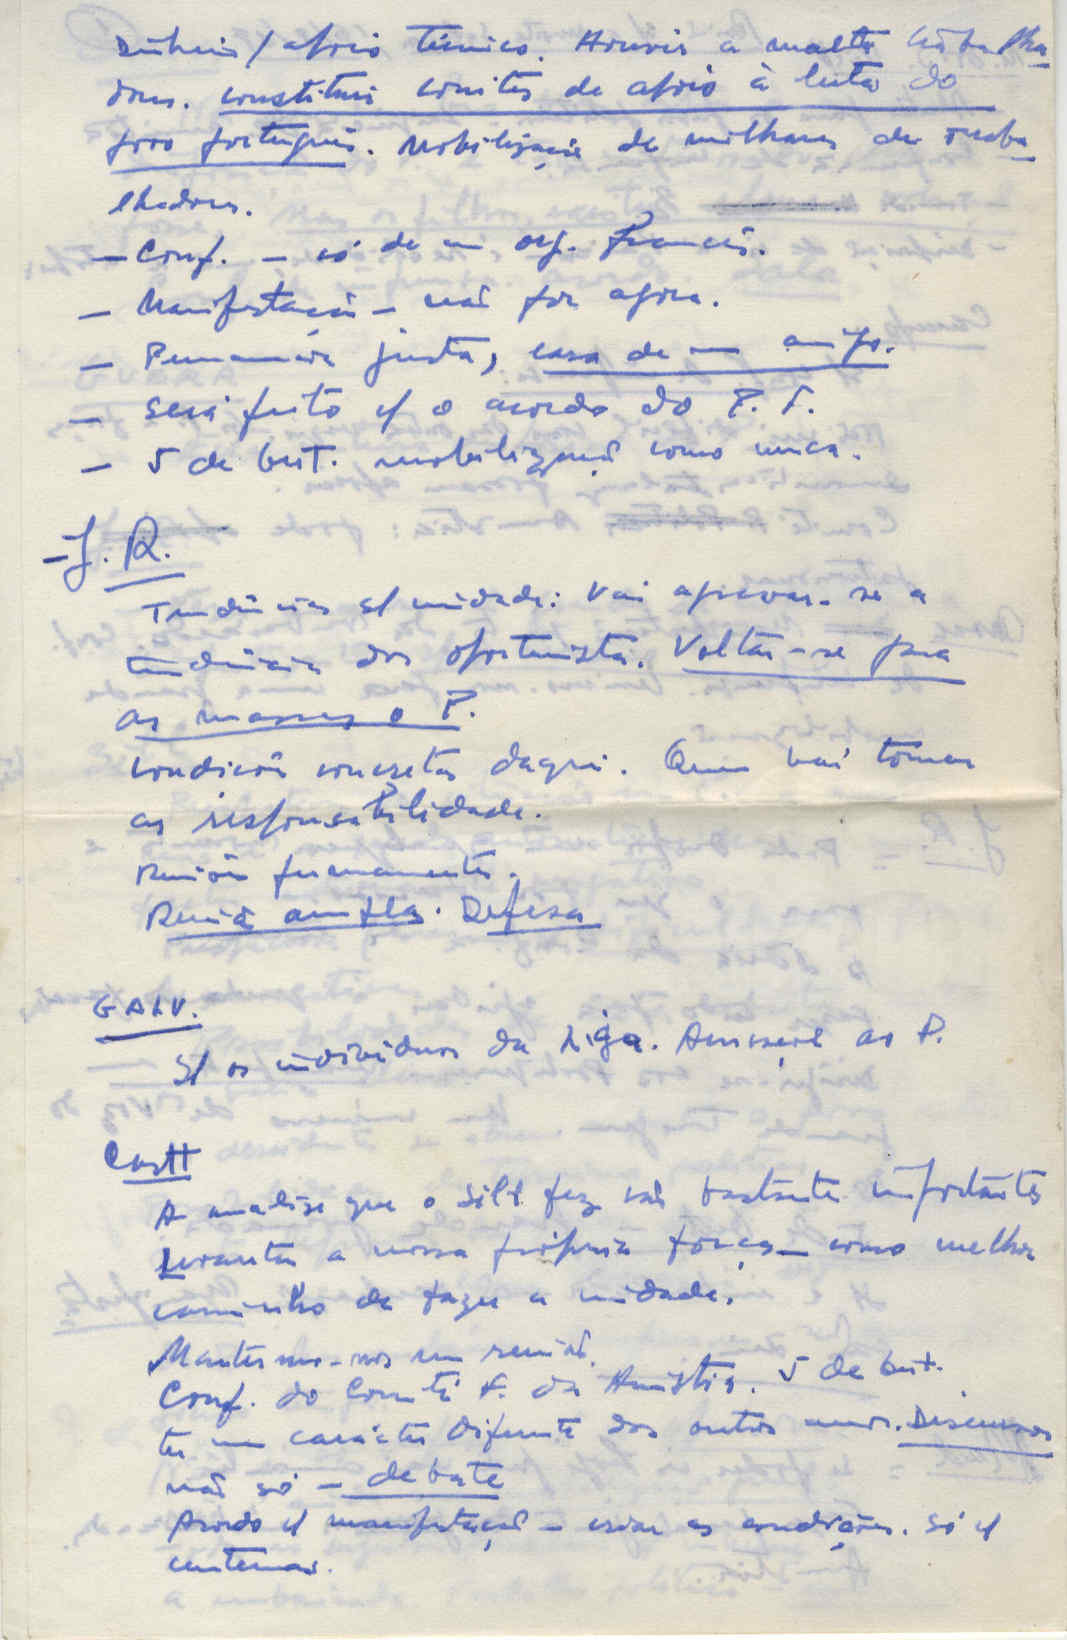 Dinheiro / apoio técnico. Honrar a malta trabalha
dora. constituir comités de apoio à luta do
povo português. Mobilização de milhares de traba-
lhadores.
– Conf. – só de um org. francês.
– Manifestação – não por agora.
– Permanência justa, casa de um amigo.
– Será feito c/ o acordo do P. F.
– 5 de Out. mobilização como nunca.
– J. R.
Tendências s/ unidade: Vai agravar-se a
tendência dos oportunistas. Voltar-se para
as massas o P.
condições concretas daqui. Quem vai tomar
as responsabilidade.
Reunião permanente.
Reunião ampla. Defesa
GALV.
S/ os indivíduos da Liga. Ameaça ao P.
Cast
A análise que o Silv. fez são bastante importantes
Levantar a nossa própria força – como melhor
caminho de fazer a unidade.
Mantermo-nos em reunião.
Conf. do Comité F. da Amnistia. 5 de Out.
ter um carácter diferente dos outros anos. Discursos
não só – debate
Acordo c/ manifestação – criar as condições. Só c/
centenas.